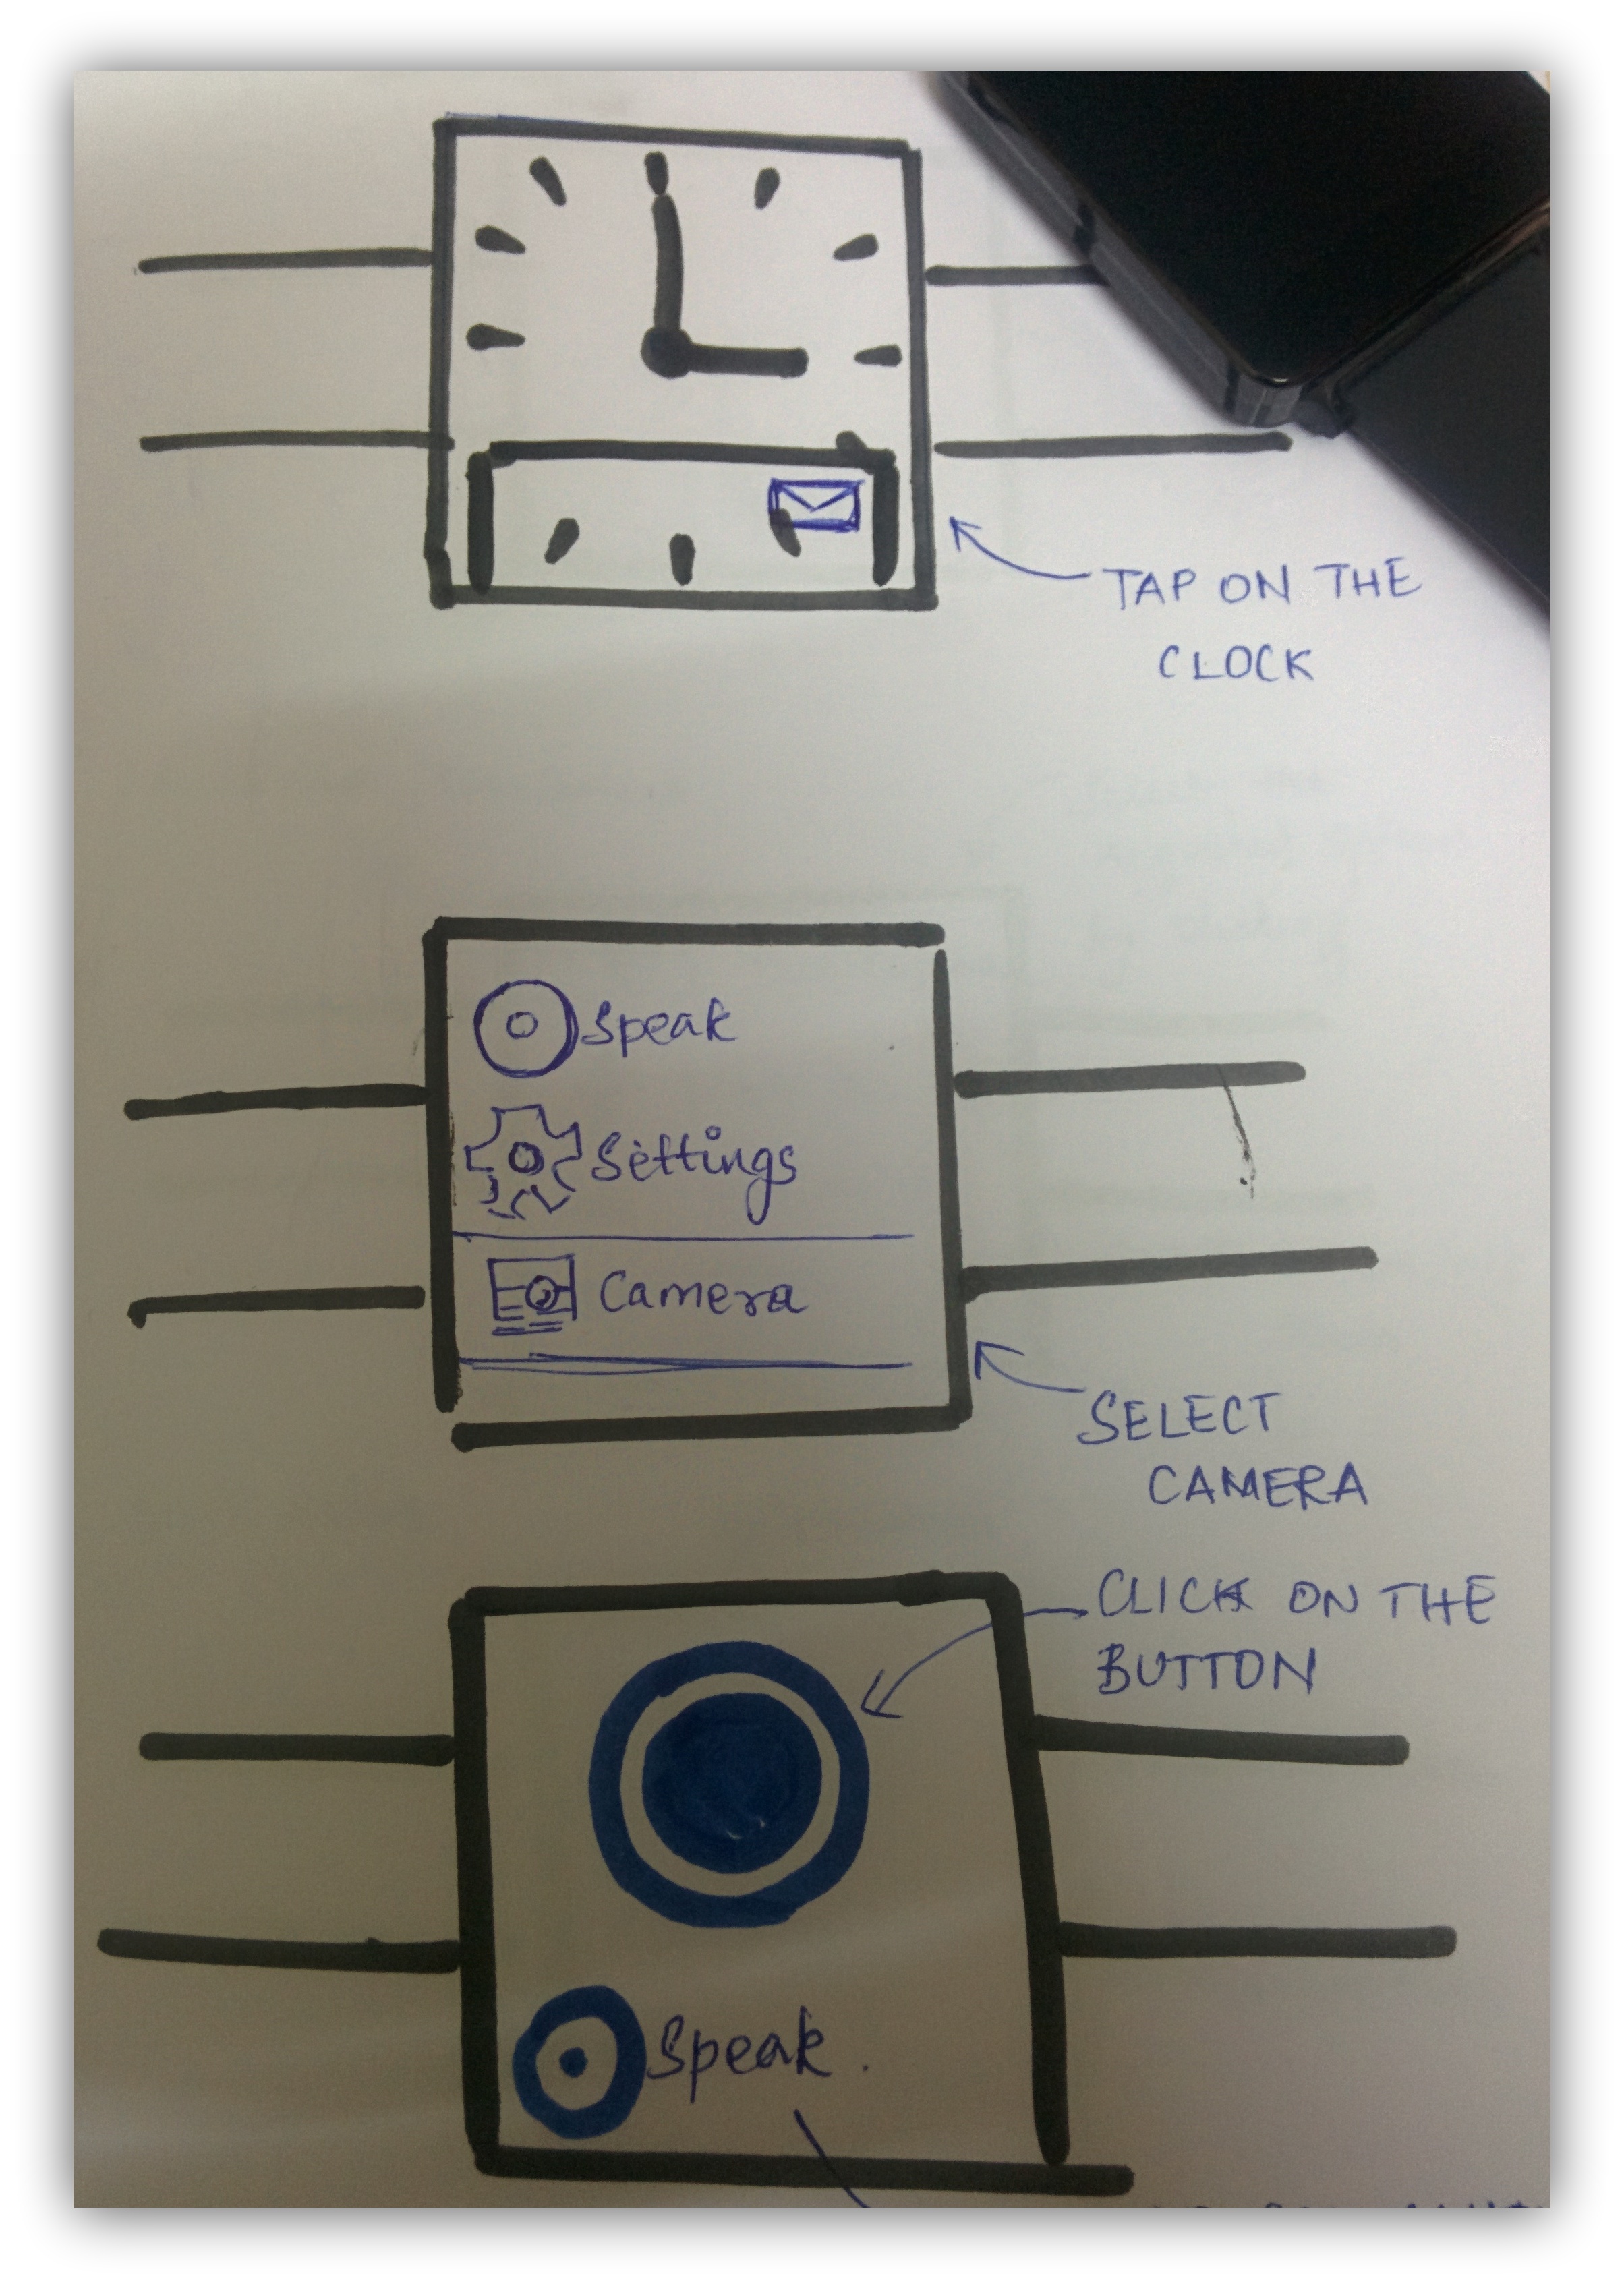 TAP ON THE
CLOCK
Speak
Settings
Camera
SELECT
CAMERA
CLICK ON THE
BUTTON
Speak.